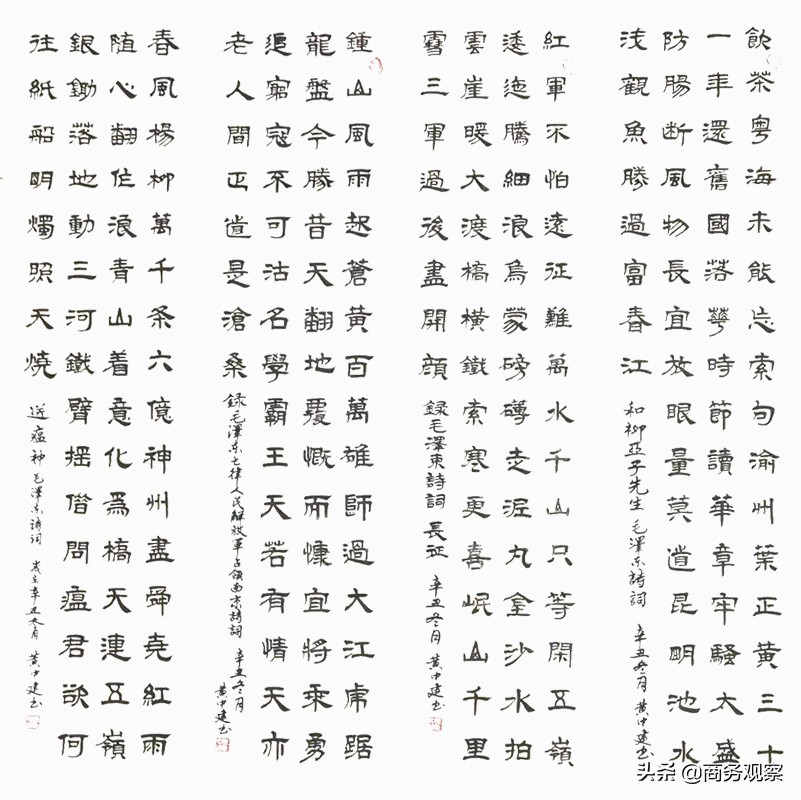 飲茶粵海未能忘索句渝州葉正黃三十
一年還舊國落蕐時節讀華章牢騷太盛
防腸断風物長宜放眼量莫道昆明池水
浅觀魚勝過富春江
和柳亞子先生 毛澤东詩詞 辛丑冬月 黃中建书
紅軍不怕遠征難萬水千山只等閑五嶺
逶迤騰細浪烏蒙磅礴走泥丸金沙水拍
雲崖暖大渡橋橫鐵索寒更喜岷山千里
雪三軍過後盡開顔
録毛澤東詩詞 長征 辛丑冬月 黃中建书
鍾山風雨起蒼黃百萬雄師過大江虎踞
龍盤今勝昔天翻地覆慨而慷宜將乘勇
追窮寇不可沽名學霸王天若有情天亦
老人間正道是滄桑
録毛澤东七律人民解放軍占領南京詩詞 辛丑冬月 黃中建书
春風楊柳萬千条六億神州盡舜堯紅雨
随心翻作浪青山着意化為橋天連五嶺
銀鋤落地動三河鐵臂摇借問瘟君欲何
往紙船明燭照天燒
送瘟神 毛澤东詩詞 歲在辛丑冬月 黃中建书
头条 @商务观察